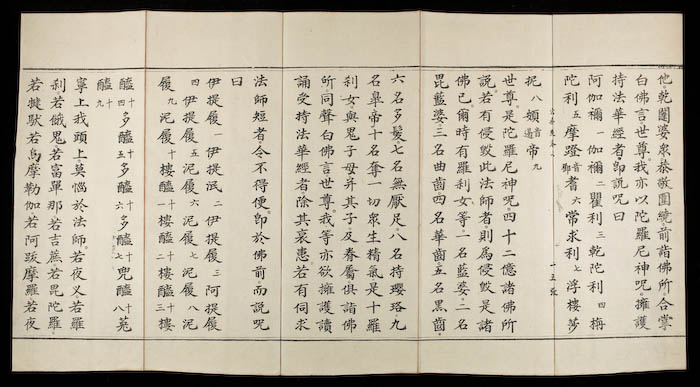 他乾闥婆衆恭敬圍繞前詣佛所合掌
白佛言世尊我亦以陀羅尼神呪擁護
持法華經者即說呪曰
阿伽禰一伽禰二瞿利三乾陀利四栴
陀利五摩蹬耆六常求利七浮樓莎
抳八頞帝九
世尊是陀羅尼神呪四十二億諸佛所
說若有侵毀此法師者則爲侵毀是諸
佛已爾時有羅剎女等一名藍婆二名
毘藍婆三名曲齒四名華齒五名黑齒
六名多髮七名無厭足八名持瓔珞九
名皐帝十名奪一切衆生精氣是十羅
剎女與鬼子母并其子及眷屬俱詣佛
所同聲白佛言世尊我等亦欲擁護讀
誦受持法華經者除其衰患若有伺求
法師短者令不得便即於佛前而說呪
曰
伊提履一伊提泯二伊提履三阿提履
四伊提履五泥履六泥履七泥履八泥
履九泥履十樓醯十一樓醯十二樓醯十三樓
醯十四多醯十五多醯十六多醯十七兜醯十八㝹
醯十九
寧上我頭上莫惱於法師若夜叉若羅
剎若餓鬼若富單那若吉蔗若毘陀羅
若揵馱若烏摩勒伽若阿跋摩羅若夜